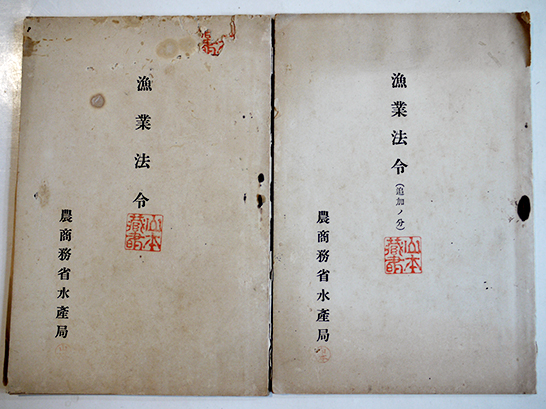 漁業法令
農商務省水産局
山本蔵書
漁業法令(追加ノ分)
農商務省水産局
山本蔵書